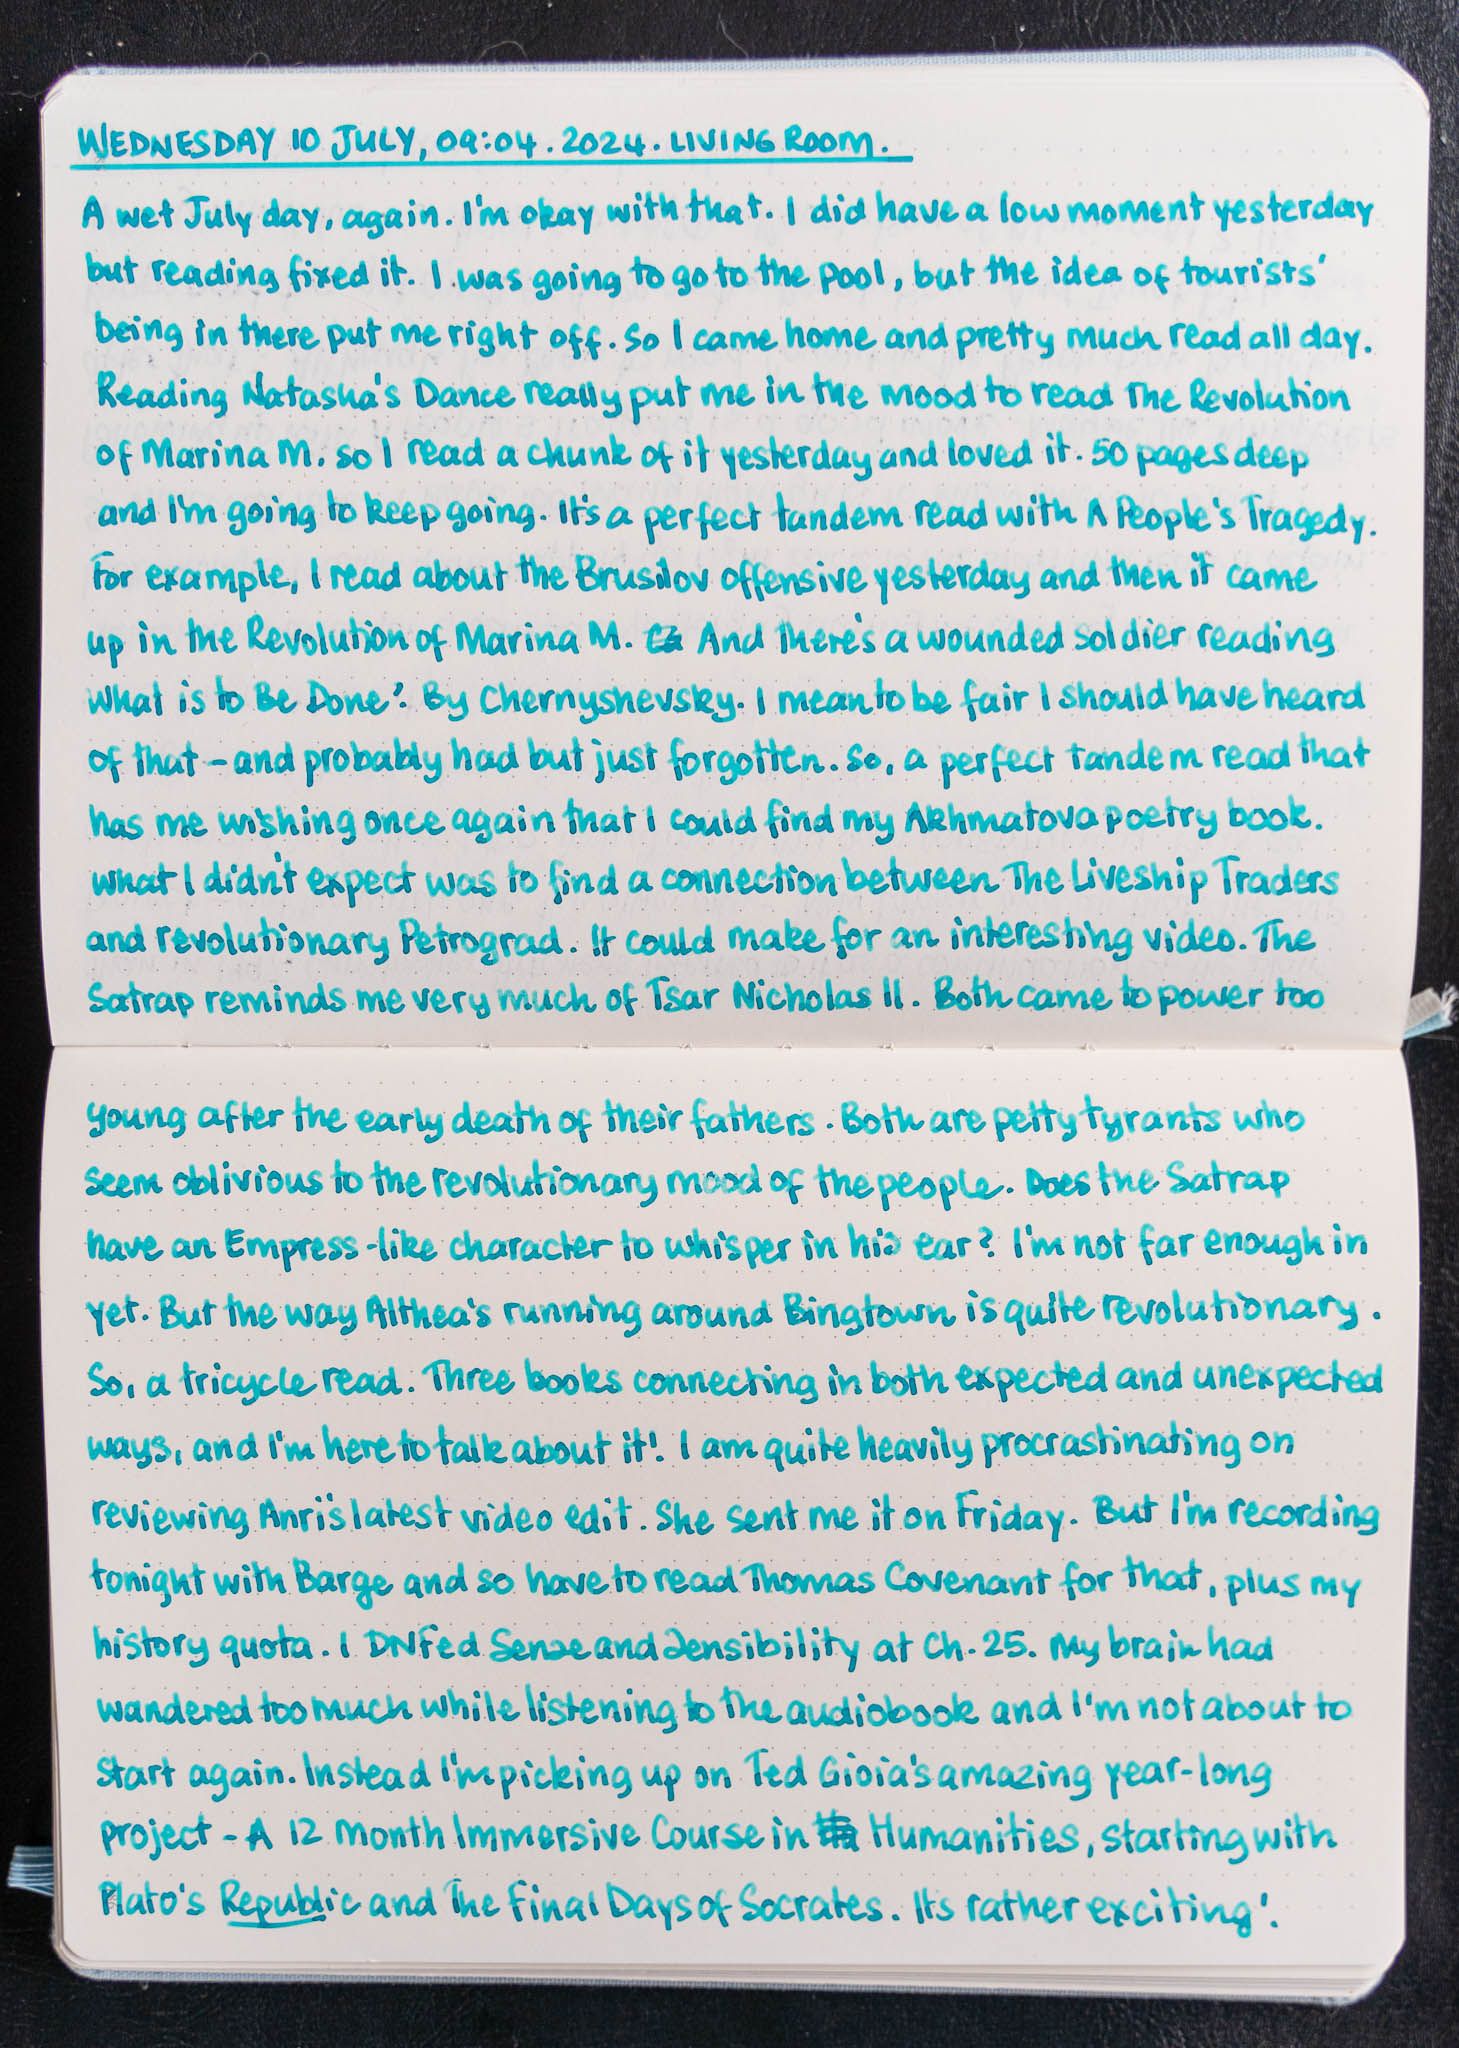 WEDNESDAY 10 JULY, 09:04. 2024. LIVING ROOM.
A wet July day, again. I'm okay with that. I did have a low moment yesterday
but reading fixed it. I was going to go to the pool, but the idea of tourists'
being in there put me right off. So I came home and pretty much read all day.
Reading Natasha's Dance really put me in the mood to read The Revolution
of Marina M. so I read a chunk of it yesterday and loved it. 50 pages deep
and I'm going to keep going. It's a perfect tandem read with A People's Tragedy.
For example, I read about the Brusilov offensive yesterday and then it came
up in the Revolution of Marina M. And there's a wounded soldier reading
What is to Be Done? By Chernyshevsky. I mean to be fair I should have heard
of that - and probably had but just forgotten. So, a perfect tandem read that
has me wishing once again that I could find my Akhmatova poetry book.
What I didn't expect was to find a connection between The Liveship Traders
and revolutionary Petrograd. It could make for an interesting video. The
Satrap reminds me very much of Tsar Nicholas II. Both came to power too
young after the early death of their fathers. Both are petty tyrants who
seem oblivious to the revolutionary mood of the people. Does the Satrap
have an Empress-like character to whisper in his ear? I'm not far enough in
yet. But the way Althea's running around Bingtown is quite revolutionary.
So, a tricycle read. Three books connecting in both expected and unexpected
ways, and I'm here to talk about it! I am quite heavily procrastinating on
reviewing Anri's latest video edit. She sent me it on Friday. But I'm recording
tonight with Barge and so have to read Thomas Covenant for that, plus my
history quota. I DNFed Sense and Sensibility at Ch. 25. My brain had
wandered too much while listening to the audiobook and I'm not about to
start again. Instead I'm picking up on Ted Gioia's amazing year-long
project - A 12 Month Immersive Course in Humanities, starting with
Plato's Republic and The Final Days of Socrates. Its rather exciting!